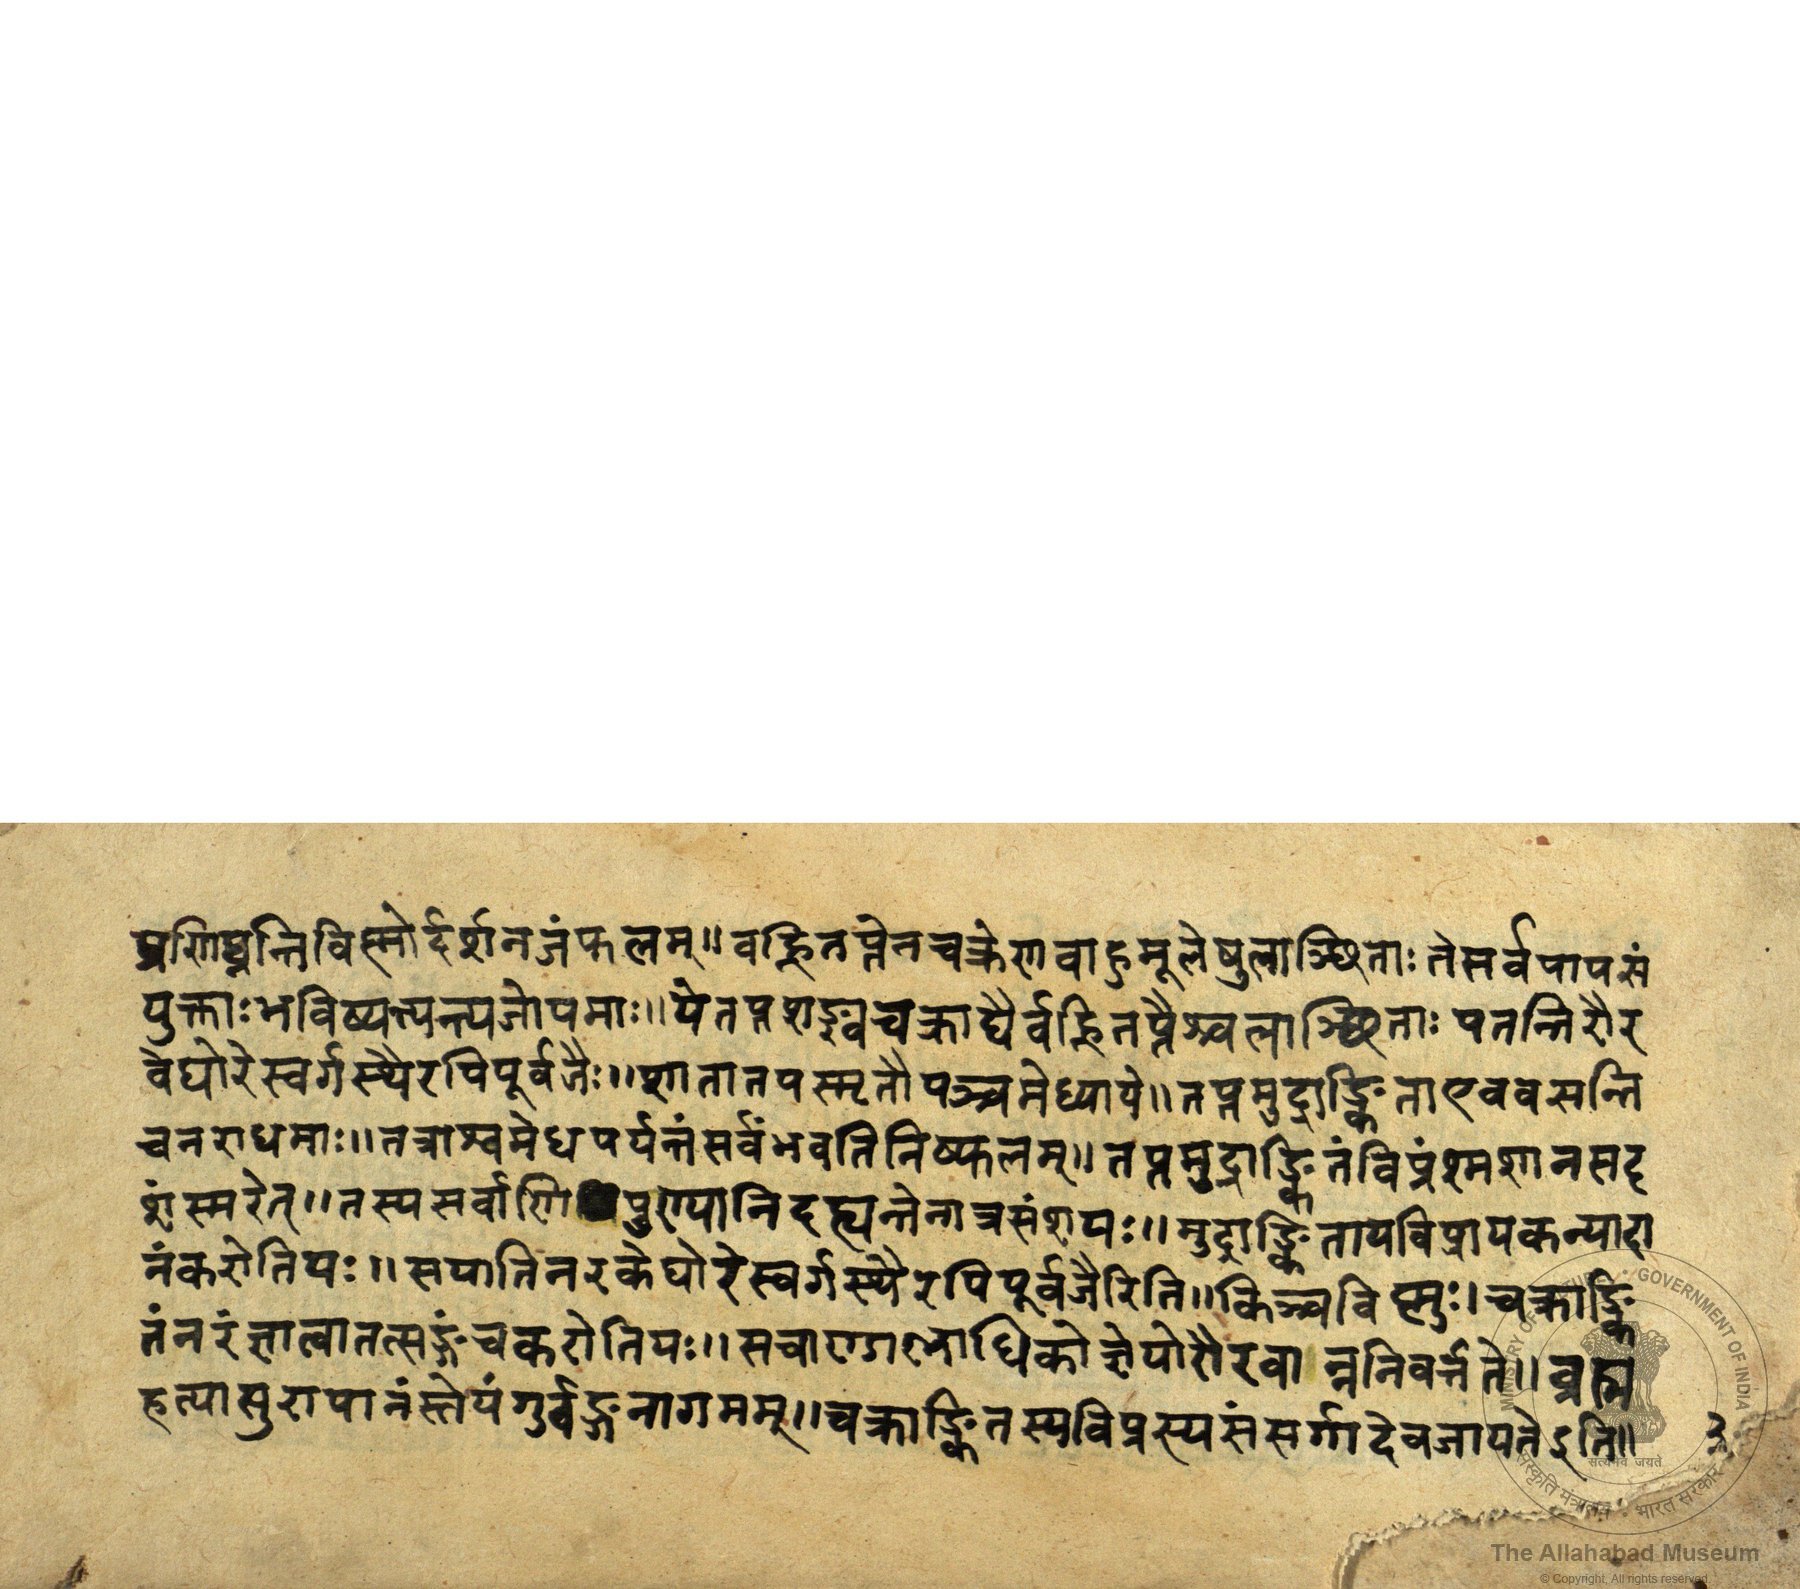 प्रणिघ्नन्ति विष्णोर्दर्शनजं फलम्॥ वह्नितप्तेन चक्रेण वाहुमूलेषु लाञ्छिताः ते सर्वपापसं
युक्ताः भविष्यत्यन्त्यजोपमाः॥ ये तप्तशङ्खचक्राद्यैर्वह्नितप्तैश्च लाञ्छिताः पतन्ति रौर
वे घोरे स्वर्गस्थैरपि पूर्वजैः॥ शातातपस्मृतौ पञ्चमेध्याये॥ तप्तमुद्राङ्किता एव वसन्ति
च नराधमाः॥ तत्राश्वमेधपर्यन्तं सर्वं भवति निष्फलम्॥ तप्तमुद्राङ्कितं विप्रं श्मशानसदृ
शं स्मरेत्॥ तस्य सर्वाणि पुण्यानि दह्यन्ते नात्र संशयः॥ मुद्राङ्किताय विप्राय कन्यादा
नं करोति यः॥ स पाति नरके घोरे स्वर्गस्थैरपि पूर्वजैरिति॥ किञ्च विष्णुः। चक्राङ्कि
तं नरं ज्ञात्वा तत्सङ्गं च करोति यः॥ स चाण्डालाधिको ज्ञेयो रौरवान्न निवर्त्तते॥ व्रह्म
हत्या सुरापानं स्तेयं गुर्वङ्गनागमम्॥ चक्राङ्कितस्य विप्रस्य संसर्गादेव जायतेऽति॥
२
MINISTRY OF CULTURE • GOVERNMENT OF INDIA
सत्यमेव जयते
संस्कृति मंत्रालय • भारत सरकार
The Allahabad Museum
© Copyright, All rights reserved